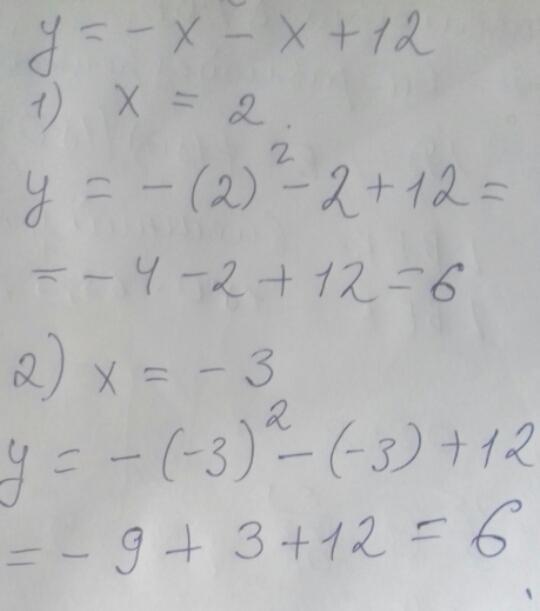 y = - x² - x + 12
1) x = 2.
y = - (2)² - 2 + 12 =
= - 4 - 2 + 12 = 6
2) x = - 3
y = - (-3)² - (-3) + 12
= - 9 + 3 + 12 = 6.